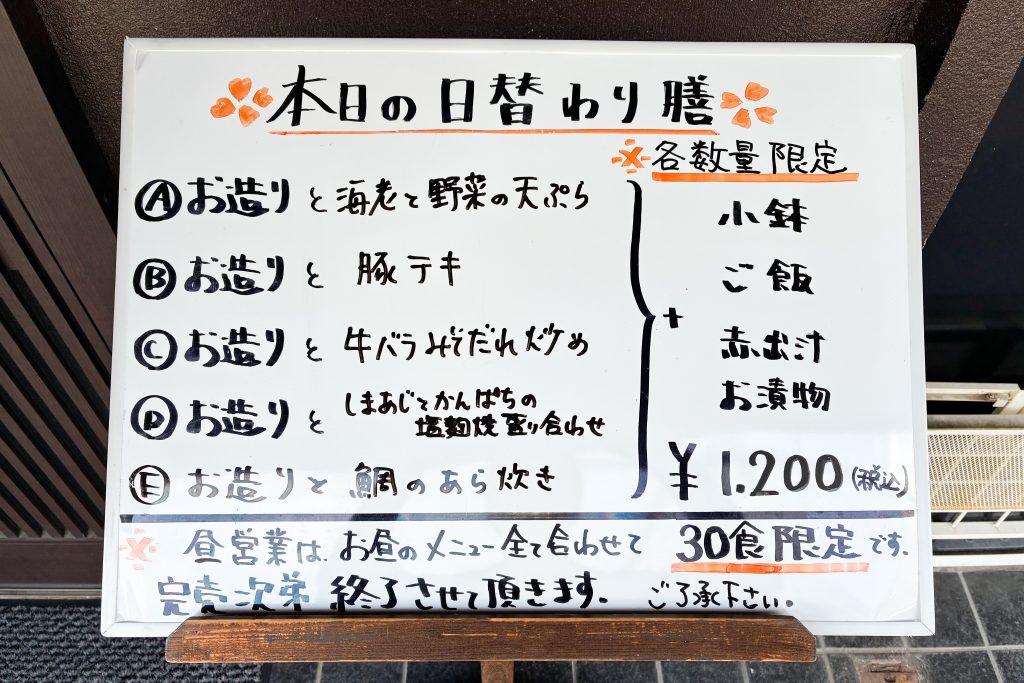 本日の日替わり膳
※各数量限定
Ⓐお造りと海老と野菜の天ぷら
Ⓑお造りと豚テキ
Ⓒお造りと牛バラみそだれ炒め
Ⓓお造りとしまあじとかんぱちの
塩麹焼盛り合わせ
Ⓔお造りと鯛のあら炊き
+
小鉢
ご飯
赤出汁
お漬物
¥1.200(税込)
※昼営業は、お昼のメニュー全て合わせて30食限定です.
完売次第終了させて頂きます. ご了承下さい。